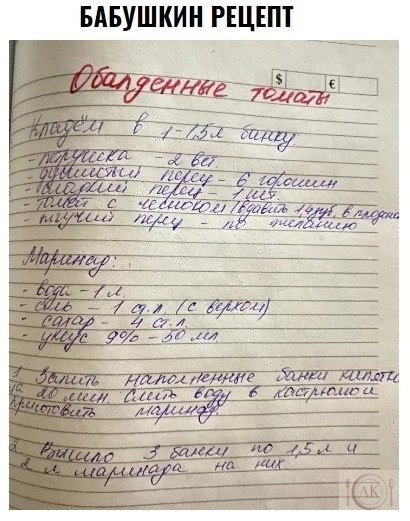 БАБУШКИН РЕЦЕПТ
$ €
Обалденные томаты
Кладём в 1-1,5л банку
- петрушка - 2 вет.
- душистый перец - 6 горошин
- сладкий перец - 1 шт.
- томат с чесноком (вдавить 1 зуб. в плодоно
- жгучий перец - по желанию
Маринад:
- вода - 1 л
- соль - 1 ст.л. (с верхом)
- сахар - 4 ст.л.
- уксус 9% - 50 мл
1 Залить наполненные банки кипятко
на 20 мин. Слить воду в кастрюлю и
приготовить маринад.
2 Вышло 3 банки по 1,5 л и
2 л маринада на них
AK